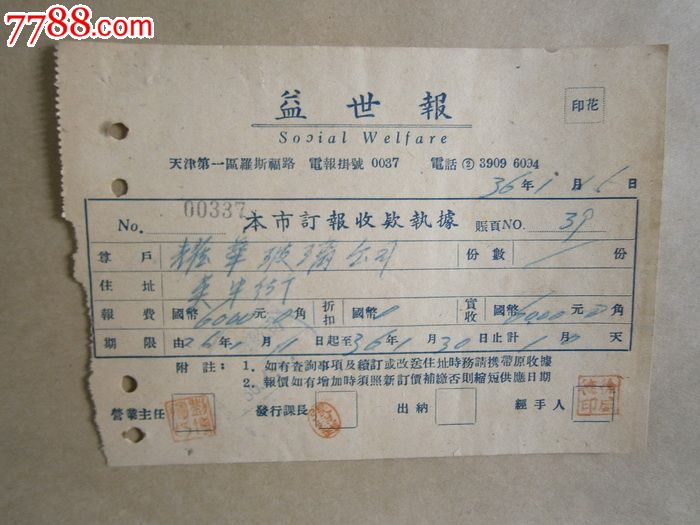 7788.com
中国收藏热线
益世報
印花
Social Welfare
天津第一區羅斯福路 電報掛號 0037 電話②3909 6094
36年1月15日
No. 00337 本市訂報收款執據 賬頁NO. 39
尊戶 耀華玻璃公司 份數 1 份
住址
報費 國幣6000元0角 折扣 國幣 實收 國幣6000元0角
期限 由36年1月1日起至36年1月30日止計1天
附註：1. 如有查詢事項及續訂或改送住址時務請攜帶原收據
2. 報價如有增加時須照新訂價補繳否則縮短供應日期
營業主任 發行課長 出納 經手人